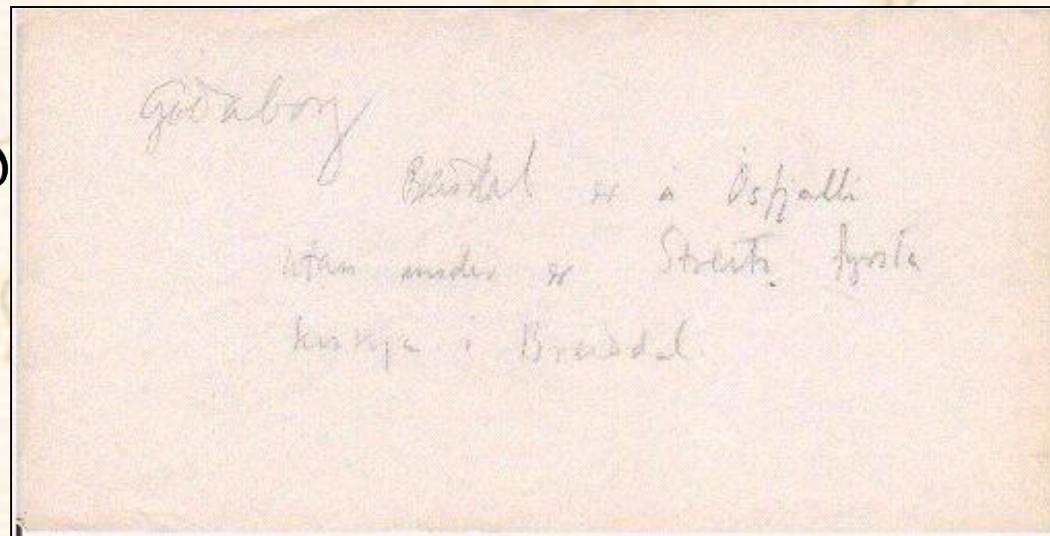 Goðaborg
Breiðdal er á Ósfjalli
utan undir er Streiti, fyrsta
kirkja i Breiðdal.